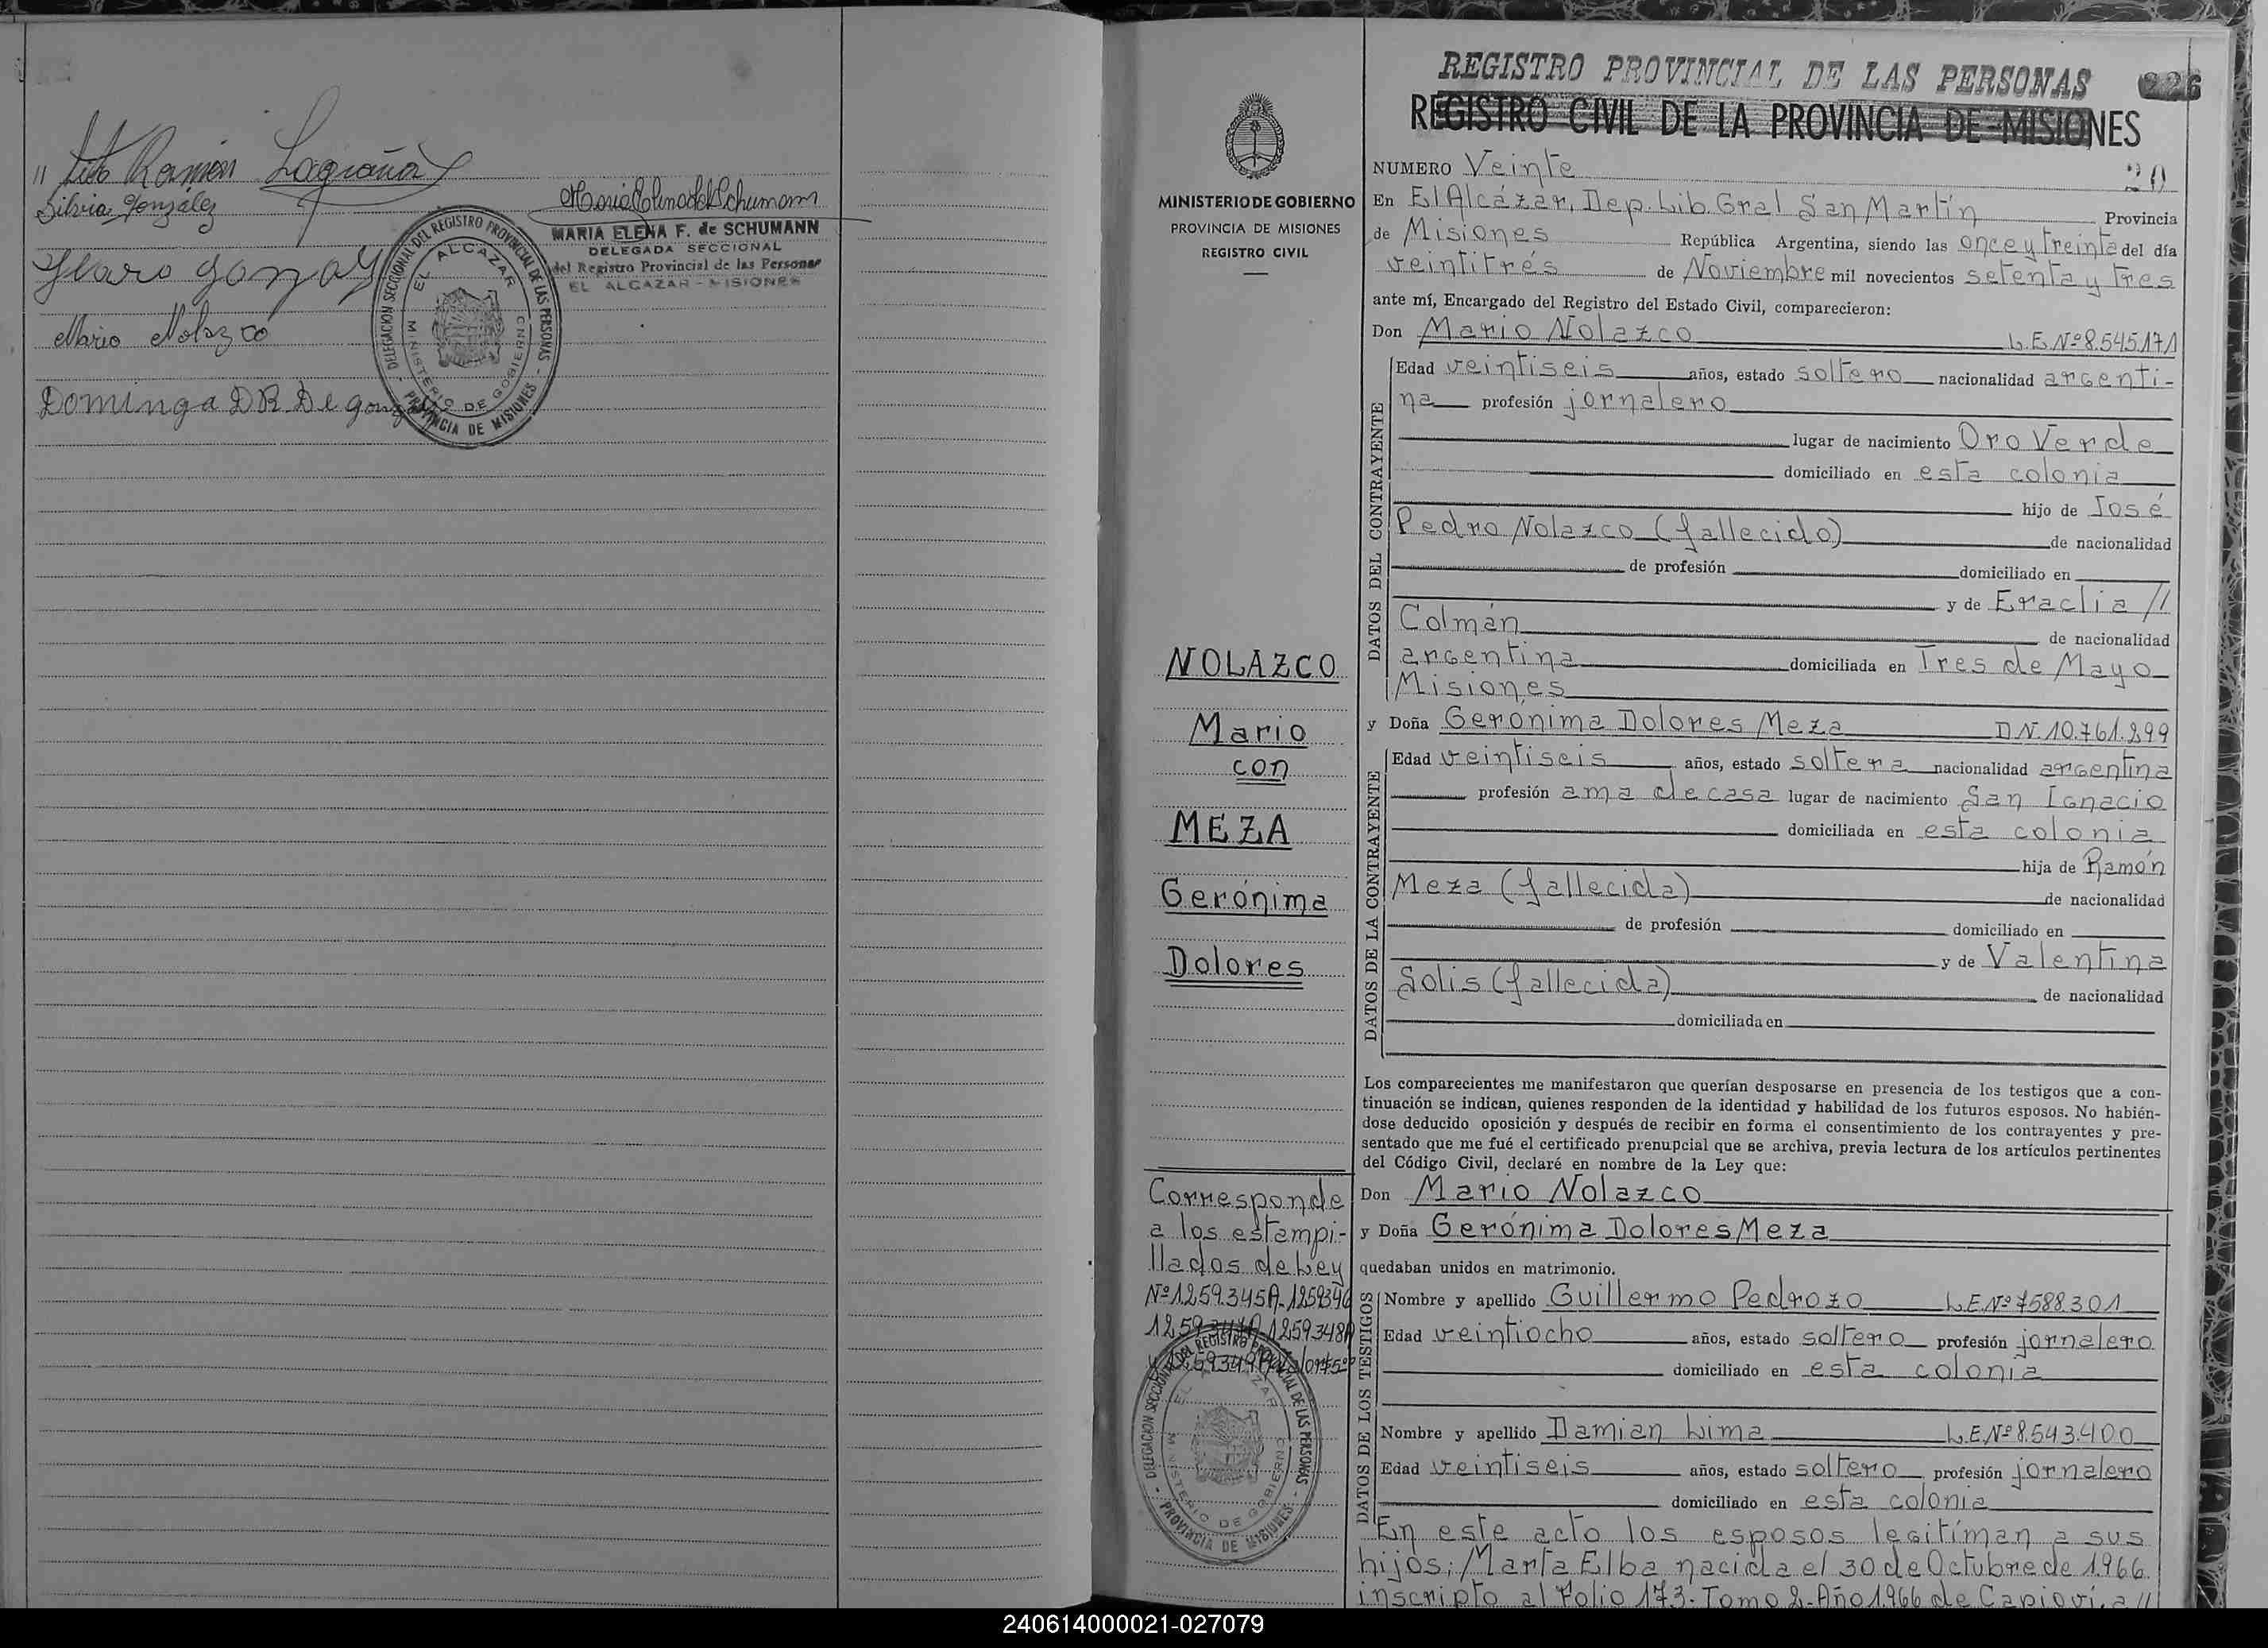 " Tito Ramón Lagraña
Silvia González
Maria Elena F de Schumann
MARIA ELENA F. de SCHUMANN
DELEGADA SECCIONAL
del Registro Provincial de las Personas
EL ALCAZAR - MISIONES
DELEGACION SECCIONAL DEL REGISTRO PROVINCIAL DE LAS PERSONAS
EL ALCAZAR
MINISTERIO DE GOBIERNO
PROVINCIA DE MISIONES
Mario Nolazco
Dominga D R De
REGISTRO PROVINCIAL DE LAS PERSONAS 226
REGISTRO CIVIL DE LA PROVINCIA DE MISIONES
MINISTERIO DE GOBIERNO
PROVINCIA DE MISIONES
REGISTRO CIVIL
NUMERO Veinte 20
En El Alcázar, Dep. Lib. Gral San Martín Provincia
de Misiones República Argentina, siendo las once y treinta del día
veintitrés de Noviembre mil novecientos setenta y tres
ante mí, Encargado del Registro del Estado Civil, comparecieron:
Don Mario Nolazco L.E.Nº 8.545.171
DATOS DEL CONTRAYENTE
Edad veintiseis años, estado soltero nacionalidad argenti-
na profesión jornalero
lugar de nacimiento Oro Verde
domiciliado en esta colonia
hijo de José
Pedro Nolazco (fallecido) de nacionalidad
de profesión domiciliado en
y de Eraclia //
Colmán de nacionalidad
argentina domiciliada en Tres de Mayo
Misiones
NOLAZCO
Mario
con
MEZA
Gerónima
Dolores
y Doña Gerónima Dolores Meza D.N. 10.761.899
DATOS DE LA CONTRAYENTE
Edad veintiseis años, estado soltera nacionalidad argentina
profesión ama de casa lugar de nacimiento San Ignacio
domiciliada en esta colonia
hija de Ramón
Meza (fallecida) de nacionalidad
de profesión domiciliado en
y de Valentina
Solis (fallecida) de nacionalidad
domiciliada en
Los comparecientes me manifestaron que querían desposarse en presencia de los testigos que a con-
tinuación se indican, quienes responden de la identidad y habilidad de los futuros esposos. No habién-
dose deducido oposición y después de recibir en forma el consentimiento de los contrayentes y pre-
sentado que me fué el certificado prenupcial que se archiva, previa lectura de los artículos pertinentes
del Código Civil, declaré en nombre de la Ley que:
Don Mario Nolazco
y Doña Gerónima Dolores Meza
quedaban unidos en matrimonio.
Corresponde
a los estampi-
llados de Ley
Nº 1259.345A-
1259348A
DELEGACION SECCIONAL DEL REGISTRO PROVINCIAL DE LAS PERSONAS
EL ALCAZAR
MINISTERIO DE GOBIERNO
PROVINCIA DE MISIONES
DATOS DE LOS TESTIGOS
Nombre y apellido Guillermo Pedrozo L.E.Nº 7588.301
Edad veintiocho años, estado soltero profesión jornalero
domiciliado en esta colonia
Nombre y apellido Damian Lima L.E.Nº 8.543.400
Edad veintiseis años, estado soltero profesión jornalero
domiciliado en esta colonia
En este acto los esposos legitíman a sus
hijos: Marta Elba nacida el 30 de Octubre de 1966.
inscripto al Folio 173. Tomo 2. Año 1966 de Capioví. a //
240614000021-027079